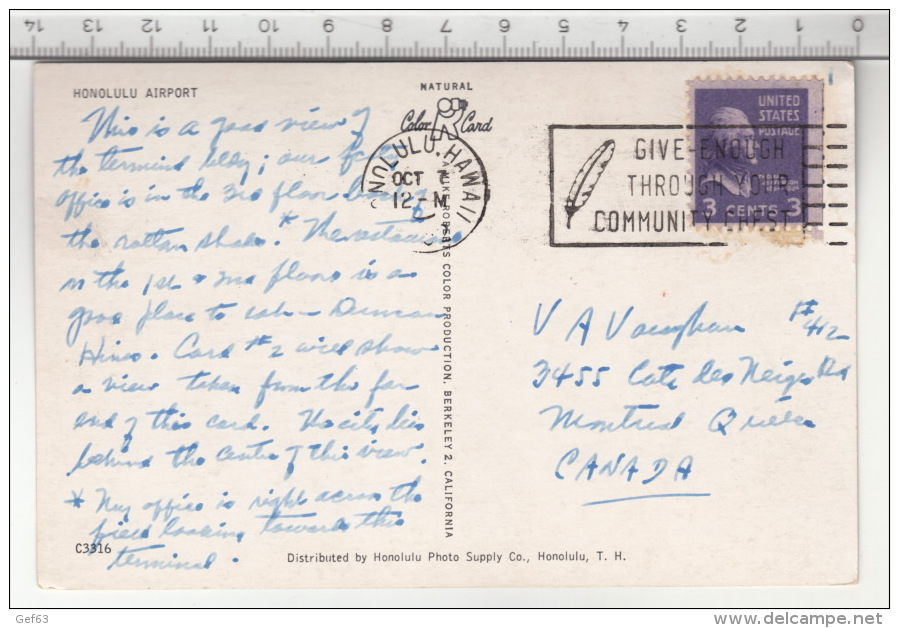 14 13 12 11 10 9 8 7 6 5 4 3 2 1 0
HONOLULU AIRPORT
NATURAL
Color Card
This is a good view of
the terminal bldg; our
office is in the 3rd floor back of
the rattan shade.* The restaurant
on the 1st & 2nd floors is a
good place to eat — Duncan
Hines. Card #2 will show
a view taken from the far
end of this card. The city lies
behind the centre of this view.
* My office is right across the
field looking towards this
terminal.
C3316
Distributed by Honolulu Photo Supply Co., Honolulu, T. H.
MIKE ROBERTS COLOR PRODUCTION. BERKELEY 2, CALIFORNIA
HONOLULU, HAWAII
OCT
12-M
GIVE-ENOUGH
THROUGH YOUR
COMMUNITY CHEST
UNITED
STATES
POSTAGE
3 CENTS 3
V A Vaughan #412
3455 Cote des Neiges Rd
Montreal Quebec
CANADA
Gef63
www.delcampe.net